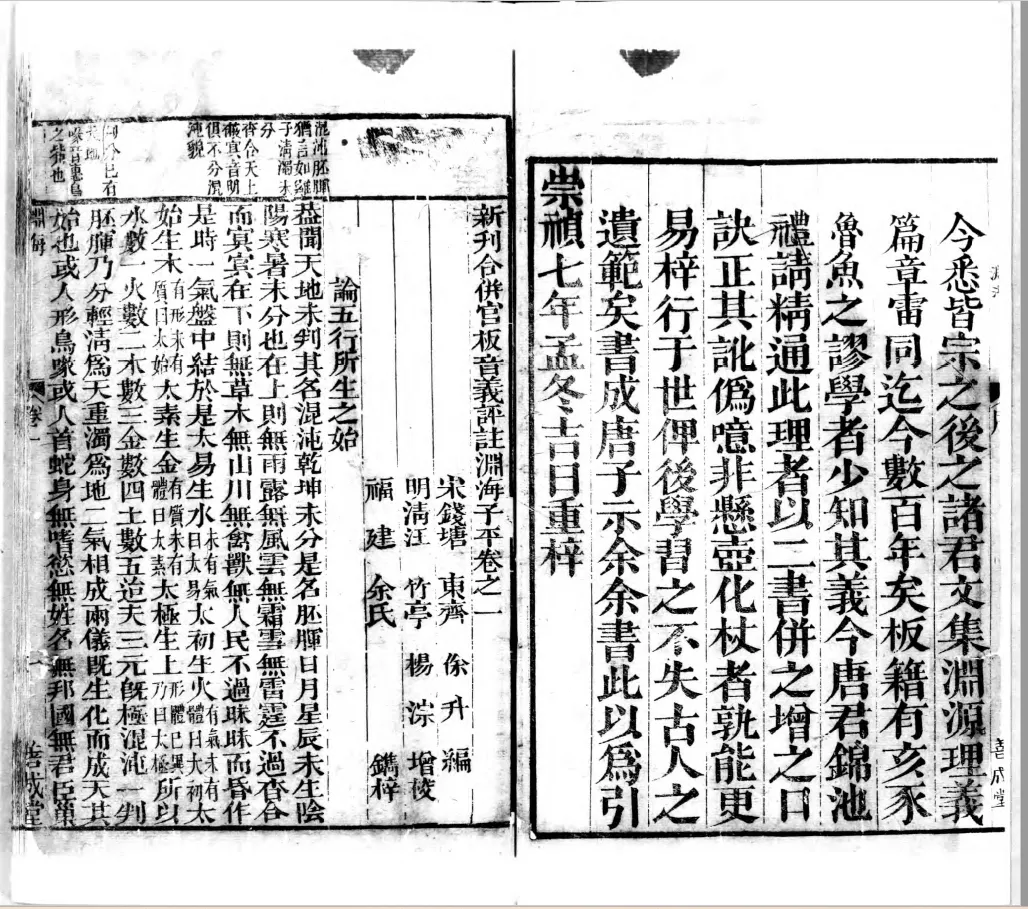 今悉皆宗之後之諸君文集淵源理義
篇章雷同迄今數百年矣板籍有亥豕
魯魚之謬學者少知其義今唐君錦池
禮請精通此理者以二書併之增之口
訣正其訛僞噫非懸壺化杖者孰能更
易梓行于世俾後學習之不失古人之
遺範矣書成唐子示余余書此以爲引
崇禎七年孟冬吉日重梓
善成堂
新刊合併官板音義評註淵海子平卷之一
宋錢塘 東齊 徐升 編
明清江 竹亭 楊淙 增校
福建 余氏 鐫梓
論五行所生之始
混沌胚腪
猶言如雞
子清濁未
分
杳合天上
冥音明
俱不分混
沌貌
蓋聞天地未判其名混沌乾坤未分是名胚腪日月星辰未生陰
陽寒暑未分也在上則無雨露無風雲無霜雪無雷霆不過杳合
而冥冥在下則無草木無山川無禽獸無人民不過昧昧而昏作
是時一氣盤中結於是太易生水未有氣曰太易太初生火有氣未有體曰太初太
始生木有形未有質曰太始太素生金有質未有體曰太素太極生土形體已具乃曰太極所以
水數一火數二木數三金數四土數五迨夫三元旣極混沌一判
胚腪乃分輕清爲天重濁爲地二氣相成兩儀旣生化而成天其
始也或人形鳥喙或人首蛇身無嗜慾無姓名無邦國無君臣巢
淵海
卷一
善成堂